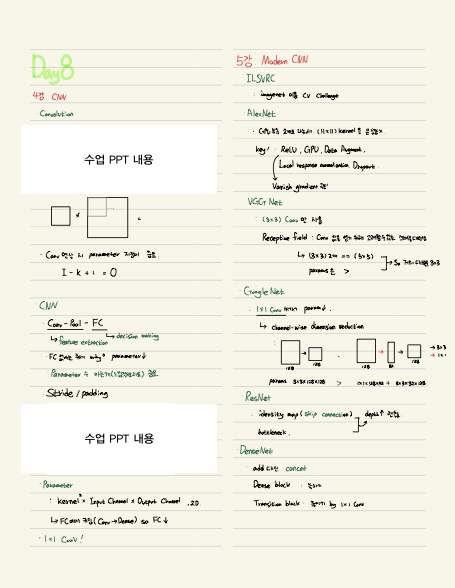 Day8
4강 CNN
Convolution
수업 PPT 내용
· Conv 연산 시 parameter 지정이 중요.
I - k + 1 = O
CNN
Conv - Pool - FC
↳ feature extraction
↳ decision making
· FC 없애는 추세 why? parameter↓
Stride / padding
수업 PPT 내용
· Parameter
: kernel² × Input Channel × Output Channel
↳ FC (Conv → Dense) so FC ↓
· 1×1 Conv!
5강 Modern CNN
ILSVRC
: imagenet 이용 CV Challenge
AlexNet
: GPU (11×11) kernel
key! : ReLU, GPU, Data Augment.
Local response normalization, Dropout.
Vanish gradient
VGG Net
: (3×3) Conv 만 사용
Receptive field : Conv
↳ (3×3) 2번 == (5×5)
params 는 >.
So 3×3
Google Net
: 1×1 Conv param↓.
↳ Channel-wise dimension reduction
128 128 128 32 128
→ 3×3
→ 1×1
params 3×3×128×128 > 1×1×128×32 + 3×3×32×128
ResNet
: identity map (skip connection)
bottleneck.
depth↑
DenseNet
: add 대신 concat
Dense block :
Transition block : by 1×1 Conv